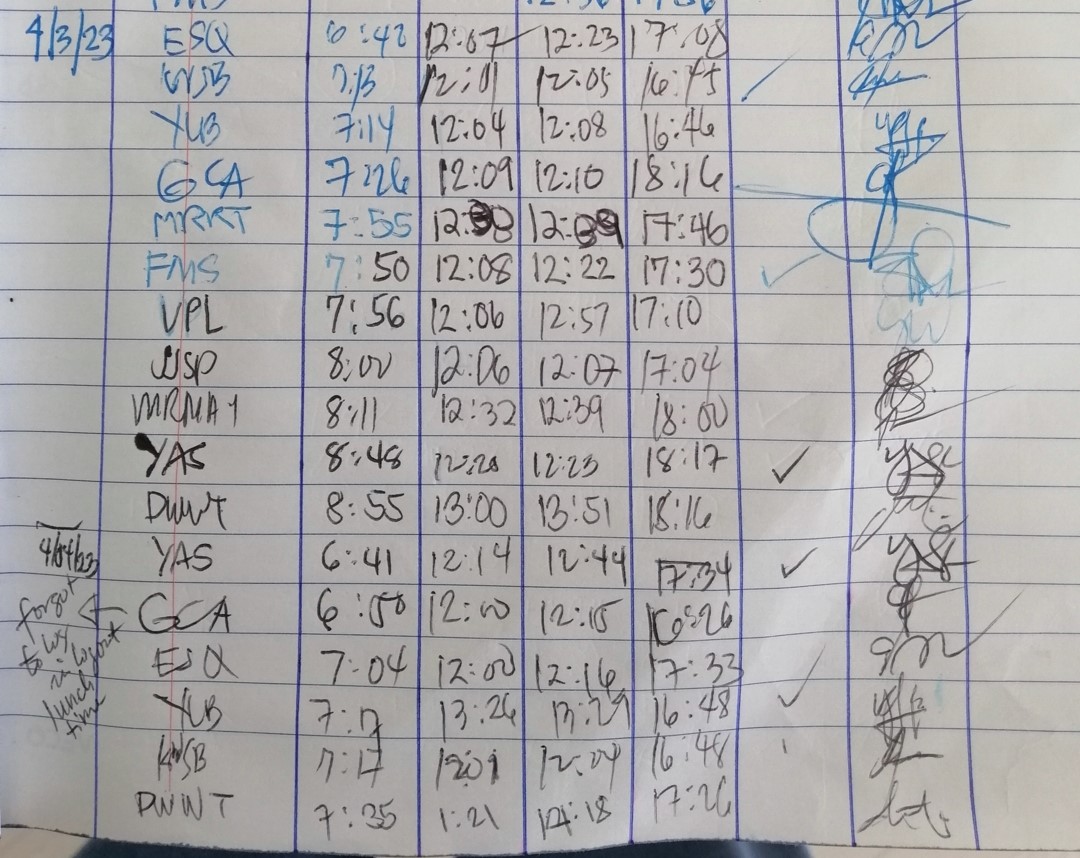 4/3/23 ESQ 6:42 12:07 12:23 17:08
WSB 7:13 12:01 12:05 16:45
YUB 7:14 12:04 12:08 16:46
GCA 7:26 12:09 12:10 18:16
MRRT 7:55 17:46
FMS 7:50 12:08 12:22 17:30
VPL 7:56 12:06 12:57 17:10
8:00 12:06 12:07 17:04
8:11 12:32 12:39 18:00
YAS 8:48 12:20 12:23 18:17
DWWT 8:55 13:00 13:51 18:16
4/04/23 YAS 6:41 12:14 12:44 17:34
GCA 6:50 12:00 12:15 16:26
ESQ 7:04 12:00 12:16 17:33
YUB 7:17 13:26 13:29 16:48
KWSB 7:17 1201 12:04 16:48
DWWT 7:35 1:21 14:18 17:26
forgot
to log
in log out
lunch
time